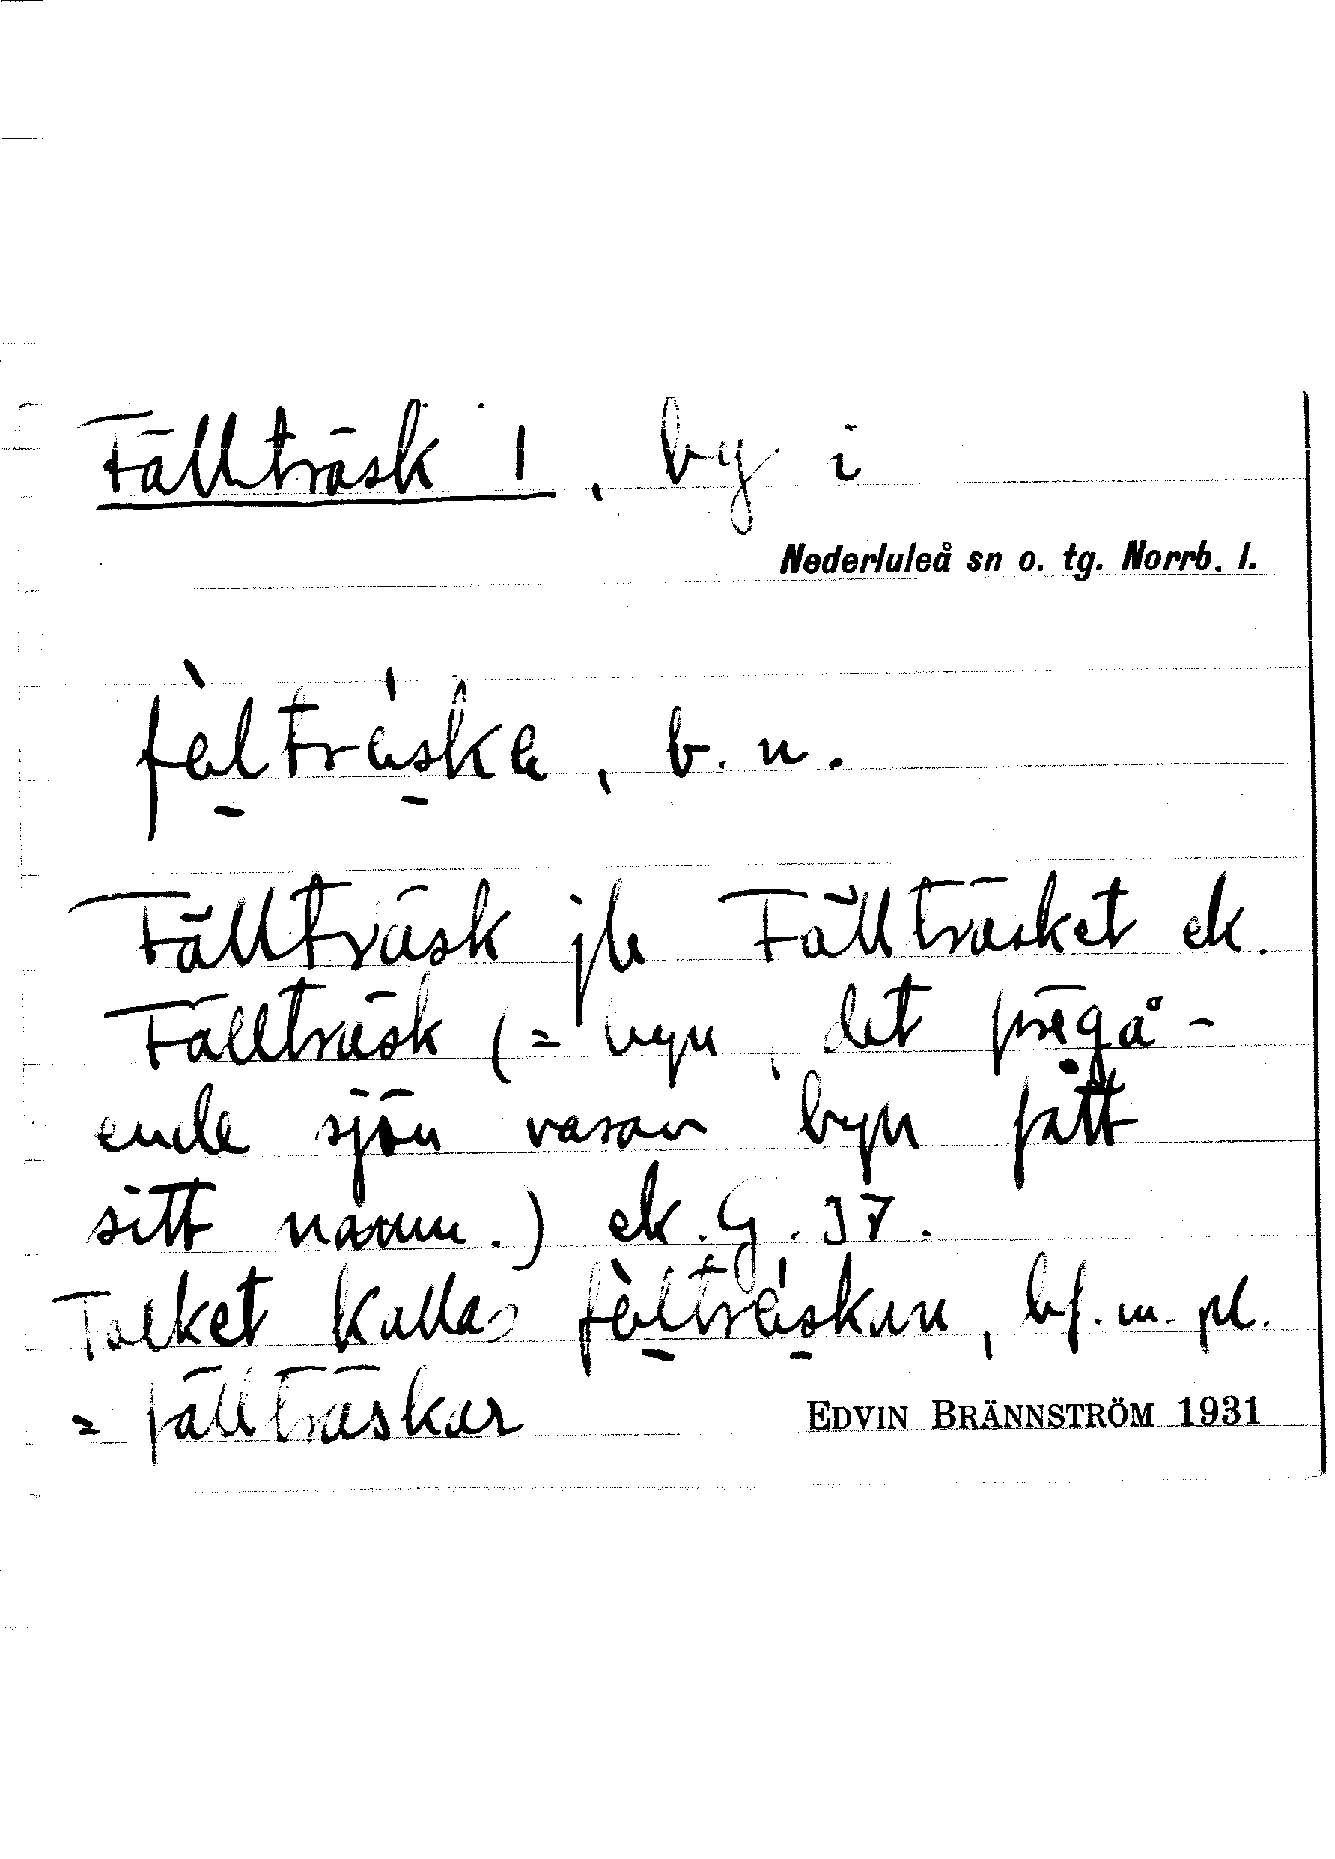 Fällträsk 1, by i
Nederluleå sn o. tg. Norrb. l.
fèltréska, b. n.
Fällträsk jb Fällträsket ek.
Fällträsk (= byn, det föregå-
ende sjön varav byn fått
sitt namn.) ek. G. 37.
Folket kallas fèltréskan, bf. m. pl.
= fällträskar
EDVIN BRÄNNSTRÖM 1931